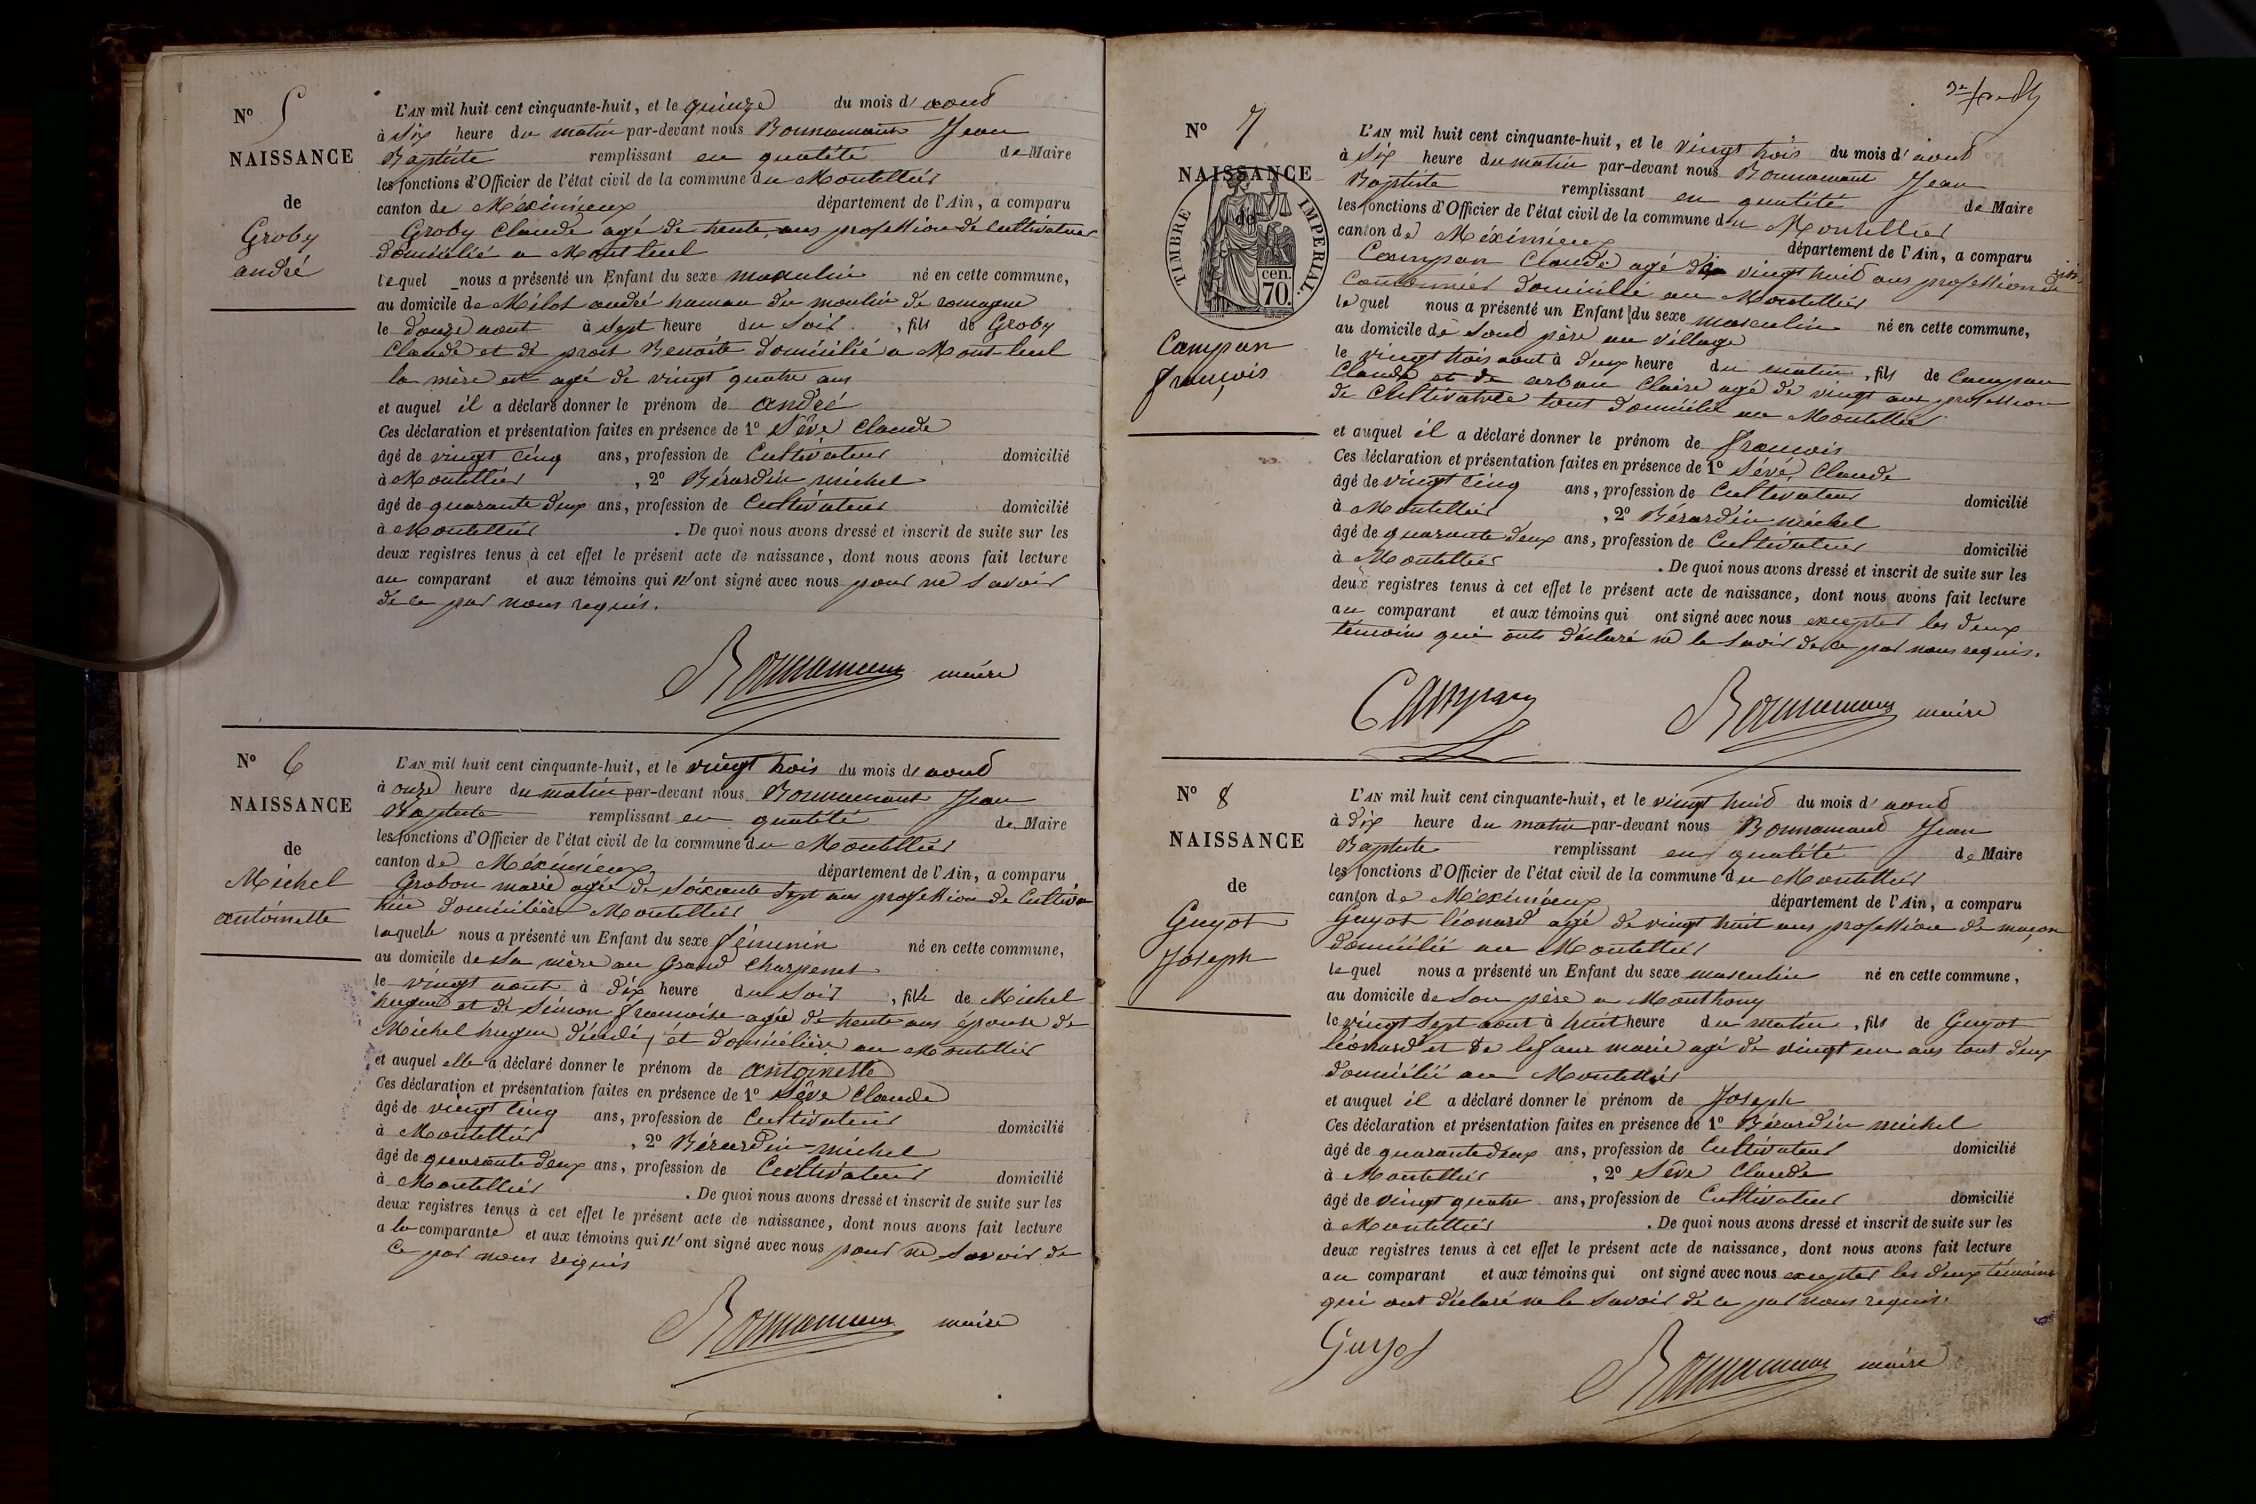 N° 5
NAISSANCE
de
Groby
andré
L'AN mil huit cent cinquante-huit, et le quinze du mois d' aout
à six heure du matin par-devant nous Bonnamant Jean
Baptiste remplissant en qualité de Maire
les fonctions d'Officier de l'état civil de la commune du Montellier
canton de Méximieux département de l'Ain, a comparu
Groby Claude agé de trente ans profession de Cultivateur
domicilié a Montluel
lequel nous a présenté un Enfant du sexe masculin né en cette commune,
au domicile de Milot andré hameau du moulin de romagne
le douze aout à sept heure du soir, fils de Groby
Claude et de prost Benoite domicilié a Mont-luel
la mère est agé de vingt quatre ans
et auquel il a déclaré donner le prénom de andré
Ces déclaration et présentation faites en présence de 1° Sève Claude
âgé de vingt cinq ans, profession de Cultivateur domicilié
à Montellier, 2° Bérardin michel
âgé de quarante deux ans, profession de Cultivateur domicilié
à Montellier. De quoi nous avons dressé et inscrit de suite sur les
deux registres tenus à cet effet le présent acte de naissance, dont nous avons fait lecture
au comparant et aux témoins qui n'ont signé avec nous pour ne savoir
de ce par nous requis.
Bonnamant maire
N° 6
NAISSANCE
de
Michel
antoinette
L'AN mil huit cent cinquante-huit, et le vingt trois du mois d' aout
à onze heure du matin par-devant nous Bonnamant Jean
Baptiste remplissant en qualité de Maire
les fonctions d'Officier de l'état civil de la commune du Montellier
canton de Méximieux département de l'Ain, a comparu
Grobon marie agée de soixante sept ans profession de Cultiva
trice domiciliée Montellier
laquelle nous a présenté un Enfant du sexe féminin né en cette commune,
au domicile de sa mère au Grand Charpenet
le vingt aout à dix heure du soir, fille de Michel
hugue et de Simon francoise agée de trente ans épouse de
Michel hugue décédé, et domicilière au Montellier
et auquel elle a déclaré donner le prénom de antoinette
Ces déclaration et présentation faites en présence de 1° Sève Claude
âgé de vingt cinq ans, profession de Cultivateur domicilié
à Montellier, 2° Bérardin-michel
âgé de quarante deux ans, profession de Cultivateur domicilié
à Montellier. De quoi nous avons dressé et inscrit de suite sur les
deux registres tenus à cet effet le présent acte de naissance, dont nous avons fait lecture
a la comparante et aux témoins qui n'ont signé avec nous pour ne savoir de
ce par nous requis
Bonnamant maire
N° 7
NAISSANCE
de
TIMBRE IMPERIAL.
cen.
70.
Campan
françois
L'AN mil huit cent cinquante-huit, et le vingt trois du mois d' aout
à six heure du matin par-devant nous Bonnamant Jean
Baptiste remplissant en qualité de Maire
les fonctions d'Officier de l'état civil de la commune du Montellier
canton de Méximieux département de l'Ain, a comparu
Campan Claude agé de vingt huit ans profession de
domicilié au Montellier
lequel nous a présenté un Enfant du sexe masculin né en cette commune,
au domicile de sont père au village
le vingt trois aout à deux heure du matin, fils de Campan
Claude et de Claire agé de vingt ans profession
de Cultivatrice tout domicilié au Montellier
et auquel il a déclaré donner le prénom de francois
Ces déclaration et présentation faites en présence de 1° Sévé Claude
âgé de vingt cinq ans, profession de Cultivateur domicilié
à Montellier, 2° Bérardin michel
âgé de quarante deux ans, profession de Cultivateur domicilié
à Montellier. De quoi nous avons dressé et inscrit de suite sur les
deux registres tenus à cet effet le présent acte de naissance, dont nous avons fait lecture
au comparant et aux témoins qui ont signé avec nous excepter les deux
témoins qui onts déclaré ne le savoir de ce par nous requis.
Campan Bonnamant maire
N° 8
NAISSANCE
de
Guyot
Joseph
L'AN mil huit cent cinquante-huit, et le vingt huit du mois d' aout
à dix heure du matin par-devant nous Bonnamant Jean
Baptiste remplissant en qualité de Maire
les fonctions d'Officier de l'état civil de la commune du Montellier
canton de Méximieux département de l'Ain, a comparu
Guyot léonard agé de vingt huit ans profession de maçon
domicilié au Montellier
lequel nous a présenté un Enfant du sexe masculin né en cette commune,
au domicile de son père a Monthony
le vingt sept aout à huit heure du matin, fils de Guyot
léonard et de marie agé de vingt un ans tout deux
domicilié au Montellier
et auquel il a déclaré donner le prénom de Joseph
Ces déclaration et présentation faites en présence de 1° Bérardin michel
âgé de quarante deux ans, profession de Cultivateur domicilié
à Montellier, 2° Sève Claude
âgé de vingt quatre ans, profession de Cultivateur domicilié
à Montellier. De quoi nous avons dressé et inscrit de suite sur les
deux registres tenus à cet effet le présent acte de naissance, dont nous avons fait lecture
au comparant et aux témoins qui ont signé avec nous excepter les deux témoins
qui ont déclaré ne le savoir de ce par nous requis.
Guyot Bonnamant maire